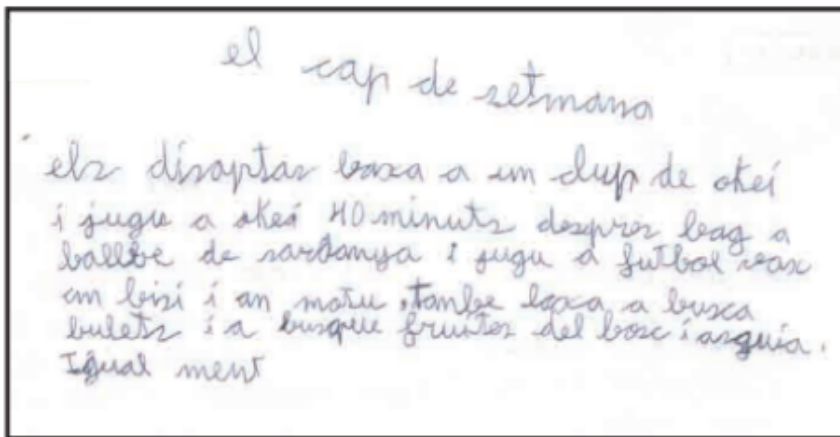 el cap de setmana
els disaptas baxa a un clup de okei
i jugu a okei 40 minuts despres bag a
ballbe de sardanya i jugu a futbol vax
em bisi i an motu. tambe baxa a busca
bulets i a busque fruites del bosc i asguia.
Igual ment